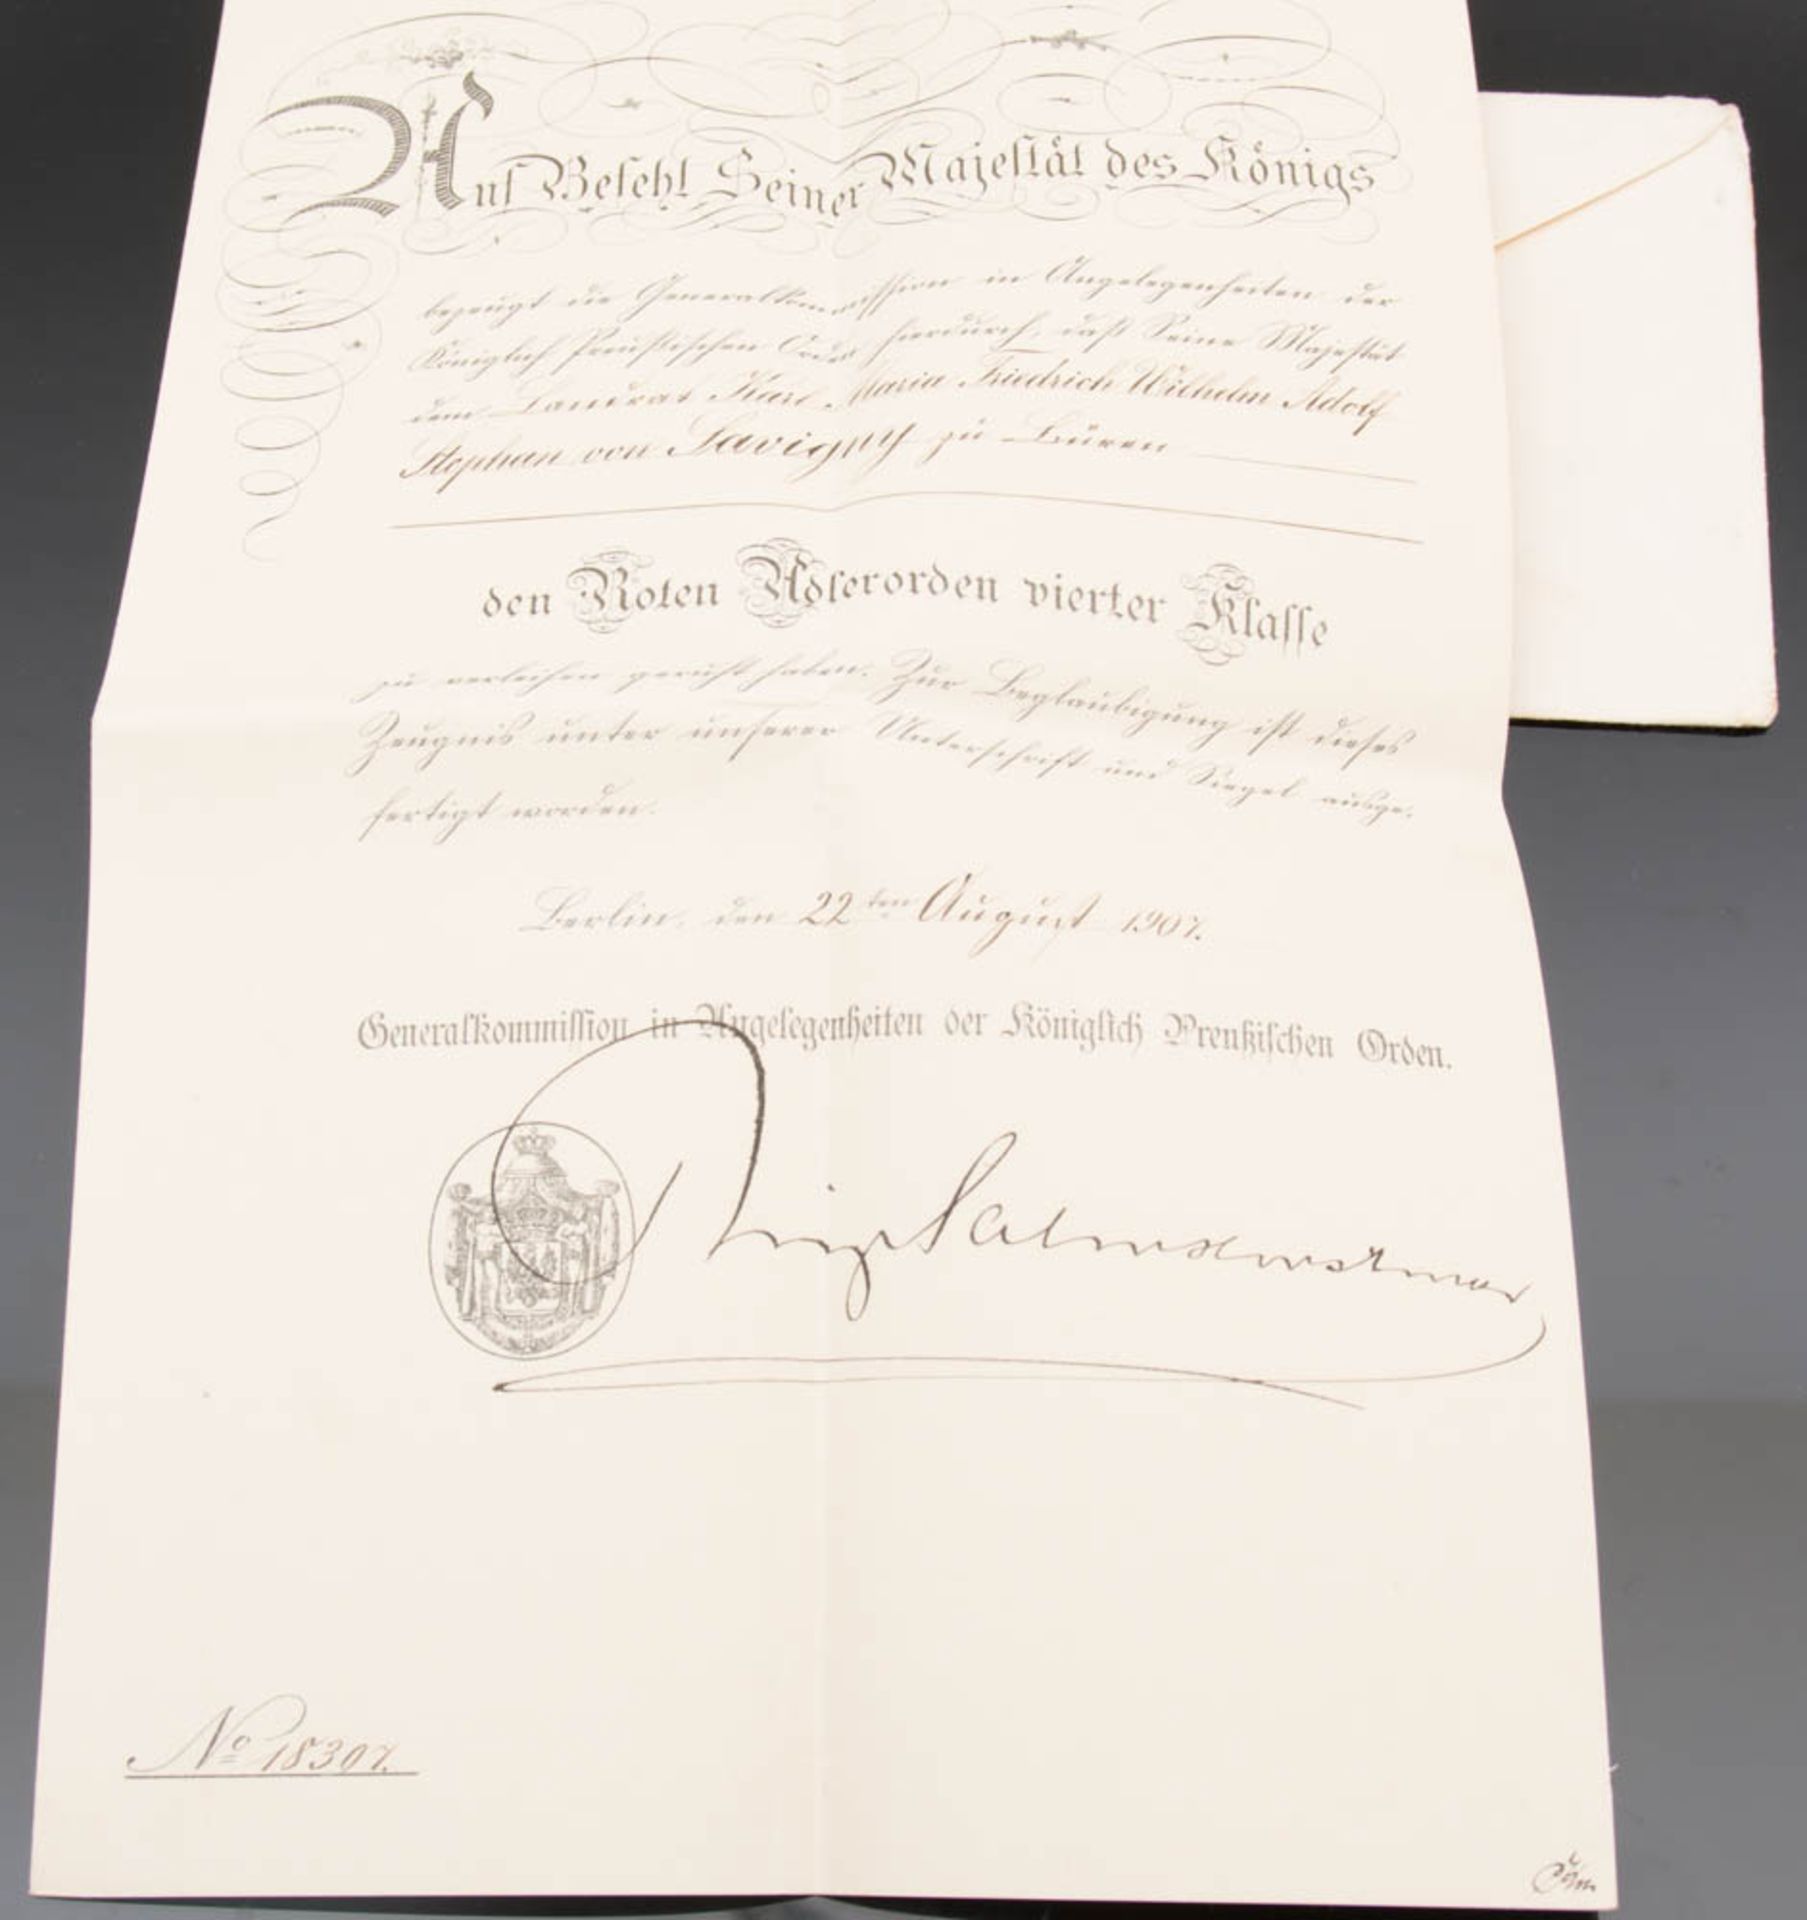 Auf Befehl Seiner Majestät des Königs
bezeugt die Generalkommission in Angelegenheiten der
Königlich Preußischen Orden hierdurch, daß Seine Majestät
dem Landrat Karl Maria Friedrich Wilhelm Adolf
Stephan von Savigny zu Büren
den Roten Adlerorden vierter Klasse
zu verleihen geruht haben. Zur Beglaubigung ist dieses
Zeugnis unter unserer Unterschrift und Siegel ausge-
fertigt worden.
Berlin, den 22ten August 1907.
Generalkommission in Angelegenheiten der Königlich Preußischen Orden.
Prinz Salmhorstmar
No 18307.